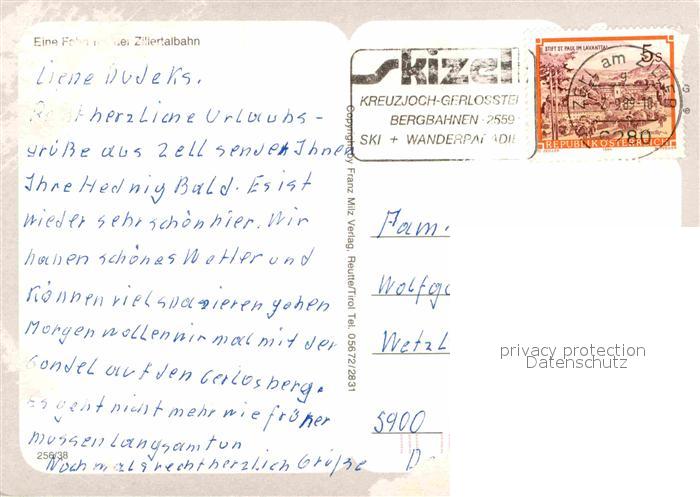 Eine Fahrt mit der Zillertalbahn
Liebe Dudeks.
Recht herzliche Urlaubs-
grüße aus Zell senden Ihnen
Ihre Hedwig Bald. Es ist
wieder sehr schön hier. Wir
haben schönes Wetter und
können viel spazieren gehen
Morgen wollen wir mal mit der
Gondel auf den Gerlosberg.
Es geht nicht mehr wie früher
müssen langsam tun
Nochmals recht herzlich Grüße
256/38
Copyright by Franz Milz Verlag, Reutte/Tirol Tel. 05672/2831
skizell
KREUZJOCH-GERLOSSTEIN
BERGBAHNEN · 2559
SKI + WANDERPARADIES
STIFT ST. PAUL IM LAVANTTAL
5s
REPUBLIK ÖSTERREICH
am
6280
Fam.
Wolfg
Wetzl
5900
privacy protection
Datenschutz